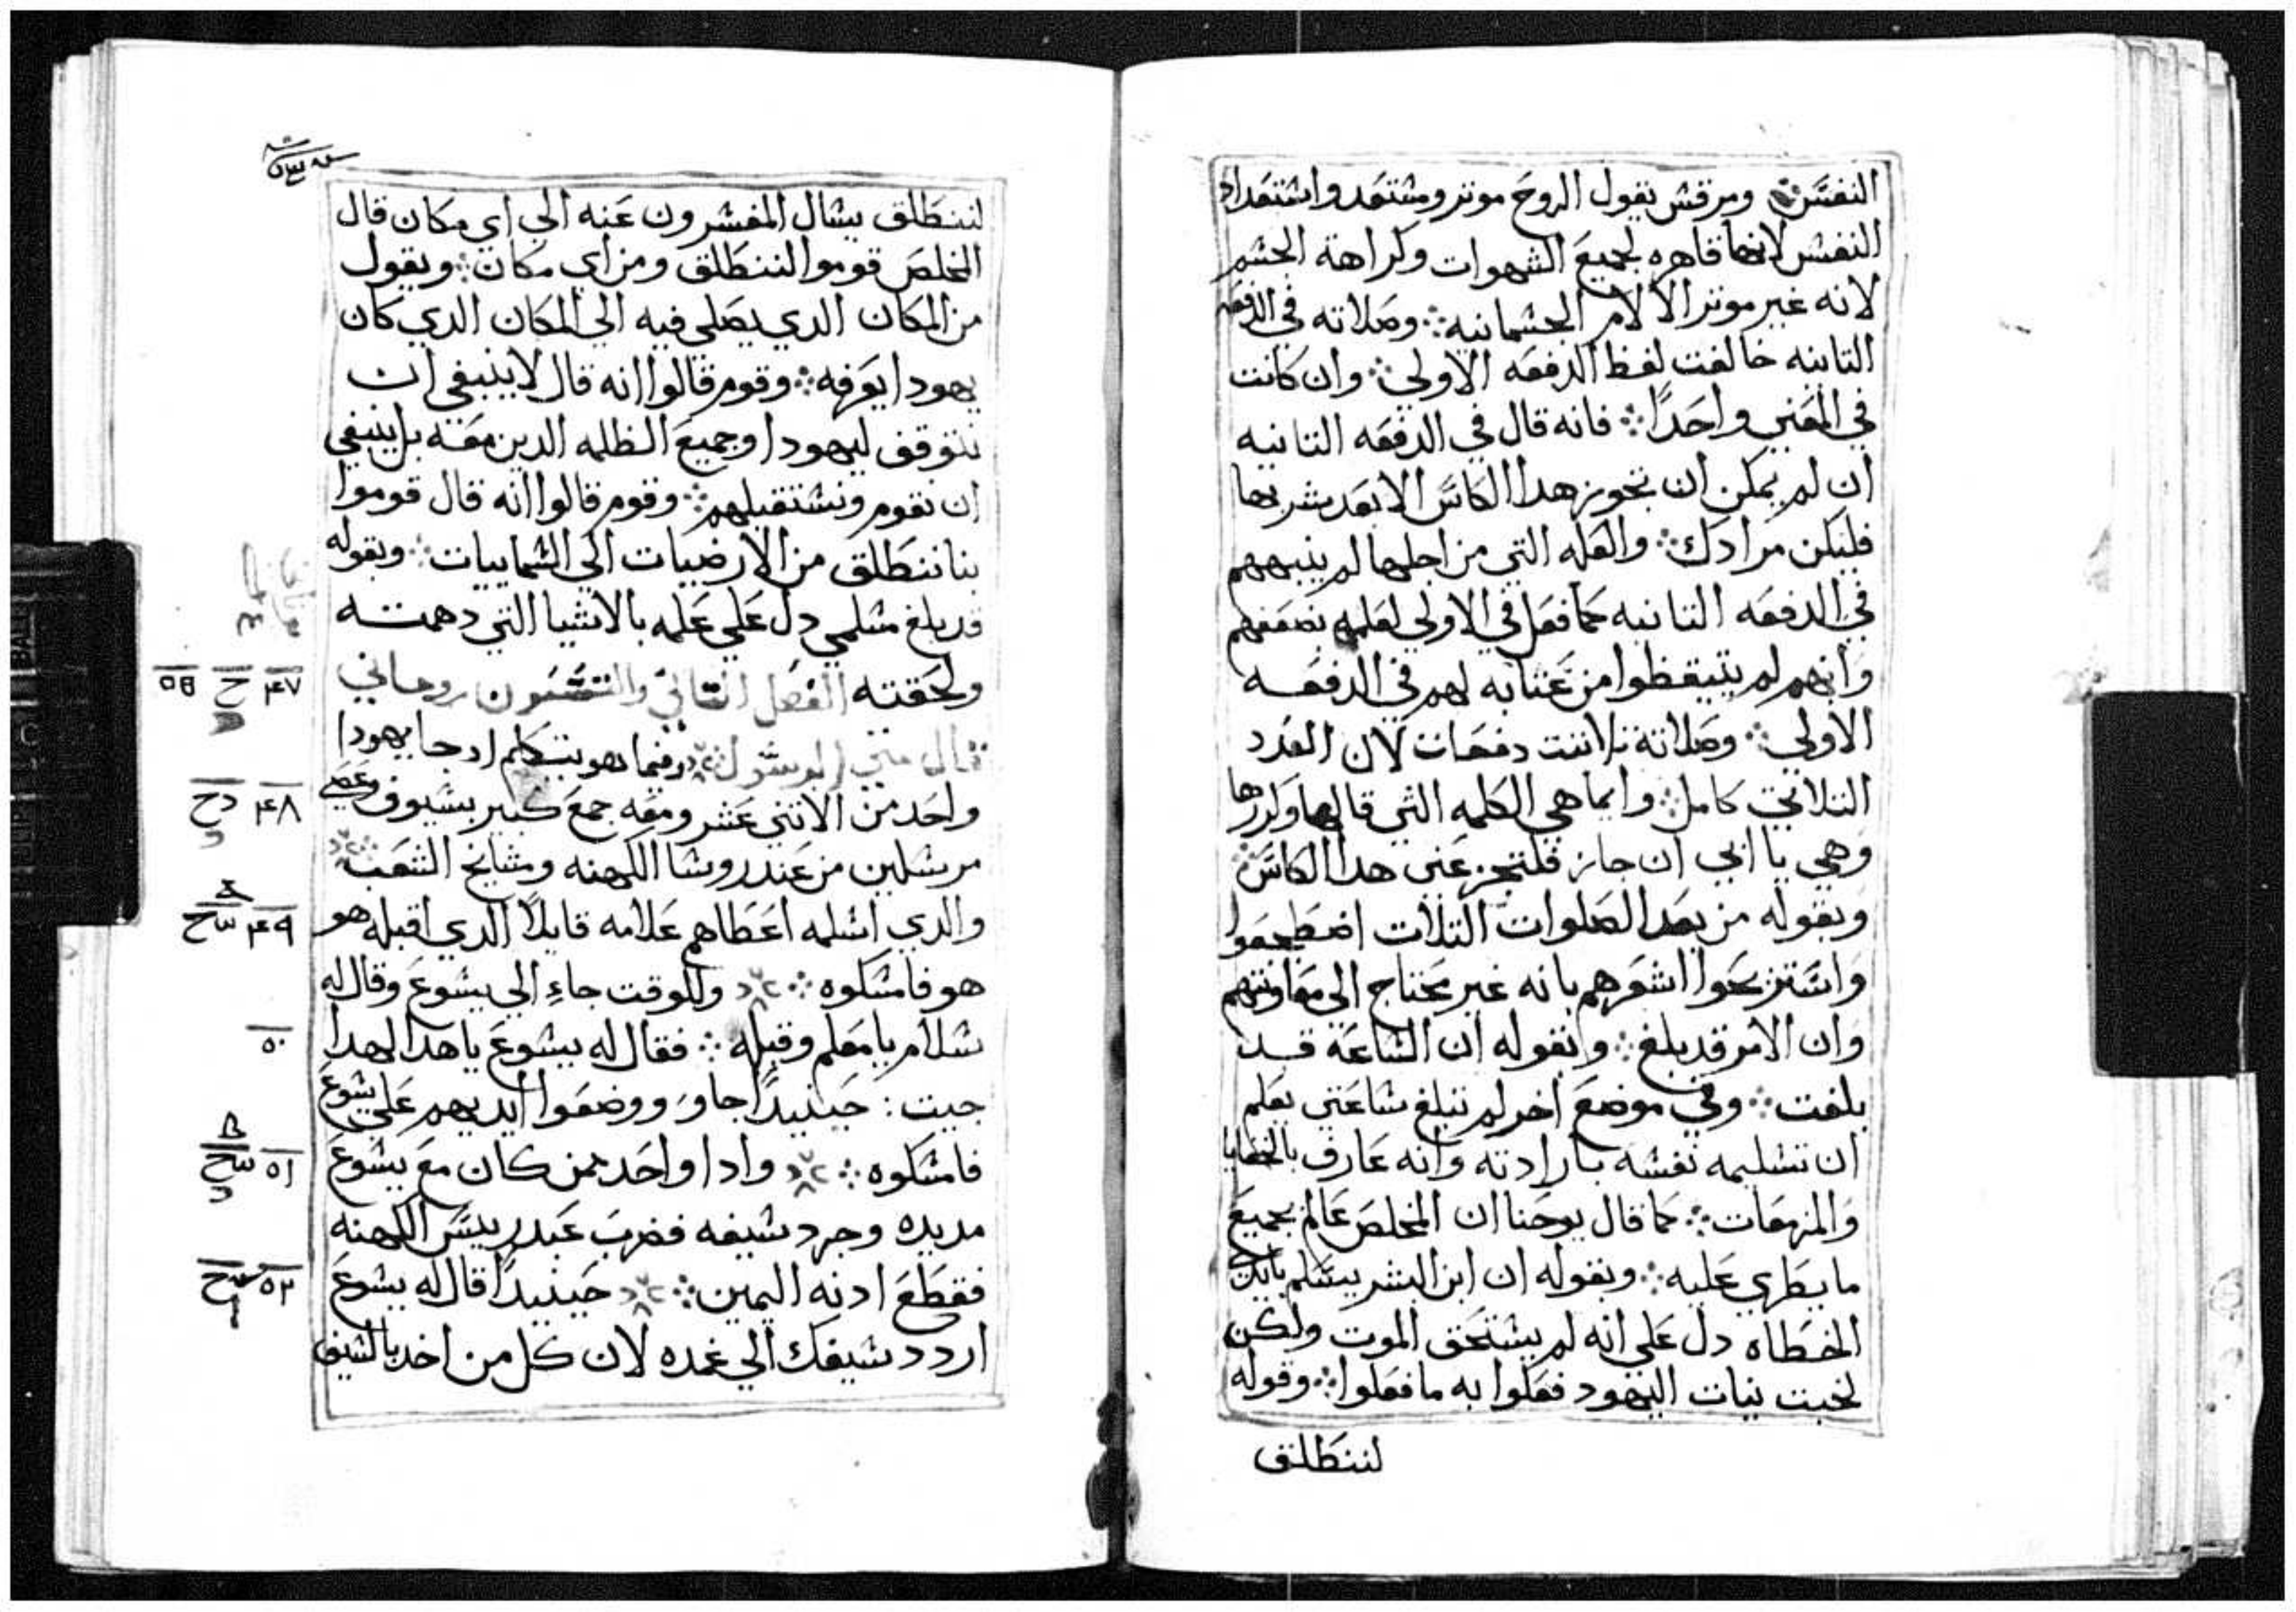 النفس ومرقس يقول الروح موتر ومشتعد واشتعداد
النفش لانها قاهره لجميع الشهوات وكراهة الجشم
لانه غير موتر الالام الجشمانيه وصلاته في الدفعه
التانيه خالفت لفظ الدفعه الاولي وان كانت
في المعني واحدًا فانه قال في الدفعه التانيه
ان لم يمكن ان تجوز هدا الكاس الا بعد شربها
فليكن مرادك والعله التي من اجلها لم ينبههم
في الدفعه التانيه كما فعل في الاولي لعلمه بضعفهم
وانهم لم يتيقظوا من عتابه لهم في الدفعه
الاولي وصلاته تلاتت دفعات لان العدد
التلاتي كامل وايما هي الكلمه التي قالها وكررها
وهي يا ابي ان جاز فلتجز عني هدا الكاس
وبقوله من بعد الصلوات التلات اضطجعوا
واستريحوا اشعرهم بانه غير محتاج الي معاونتهم
وان الامر قد بلغ وبقوله ان الشاعة قد
بلغت وفي موضع اخر لم تبلغ شاعتي يعلم
ان تشليمه نفشه بارادته وانه عارف بالخفايا
والمزمعات كما قال يوحنا ان المخلص عالم بجميع
ما يطري عليه وبقوله ان ابن البشر يسلم بايدي
الخطاه دل علي انه لم يشتحق الموت ولكن
لخبت نيات اليهود فعلوا به ما فعلوا وقوله
لننطلق
لننطلق يشال المفشرون عنه الي اي مكان قال
المخلص قوموا لننطلق ومن اي مكان ويقول
من المكان الدي يصلي فيه الي المكان الدي كان
يهودا يعرفه وقوم قالوا انه قال لا ينبغي ان
نتوقف ليهودا وجميع الظلمه الدين معه بل ينبغي
ان نقوم ونشتقبلهم وقوم قالوا انه قال قوموا
بنا ننطلق من الارضيات الي الشماييات وبقوله
قد بلغ مشلمي دل علي علمه بالاشيا التي دهمته
ولحقته الفصل التاني والتشعون روحاني
قال متي الرسول وفيما هو يتكلم اد جا يهودا
واحد من الاتني عشر ومعه جمع كبير بشيوف وعصي
مرشلين من عند روشا الكهنه ومشايخ الشعب
والدي اشلمه اعطاهم علامه قايلًا الدي اقبله هو
هو فامشكوه وللوقت جاء الي يشوع وقال له
شلام يا معلم وقبله فقال له يشوع يا هدا لهدا
جيت : حينيدًا جاو ووضعوا ايديهم علي يشوع
فامشكوه وادا واحد ممن كان مع يشوع
مد يده وجرد شيفه فضرب عبد رييس الكهنه
فقطع ادنه اليمين حينيدًا قال له يشوع
اردد شيفك الي غمده لان كل من اخد بالشيف
٤٧ ح
٤٨ دح
٤٩
٥٠
٥١
٥٢